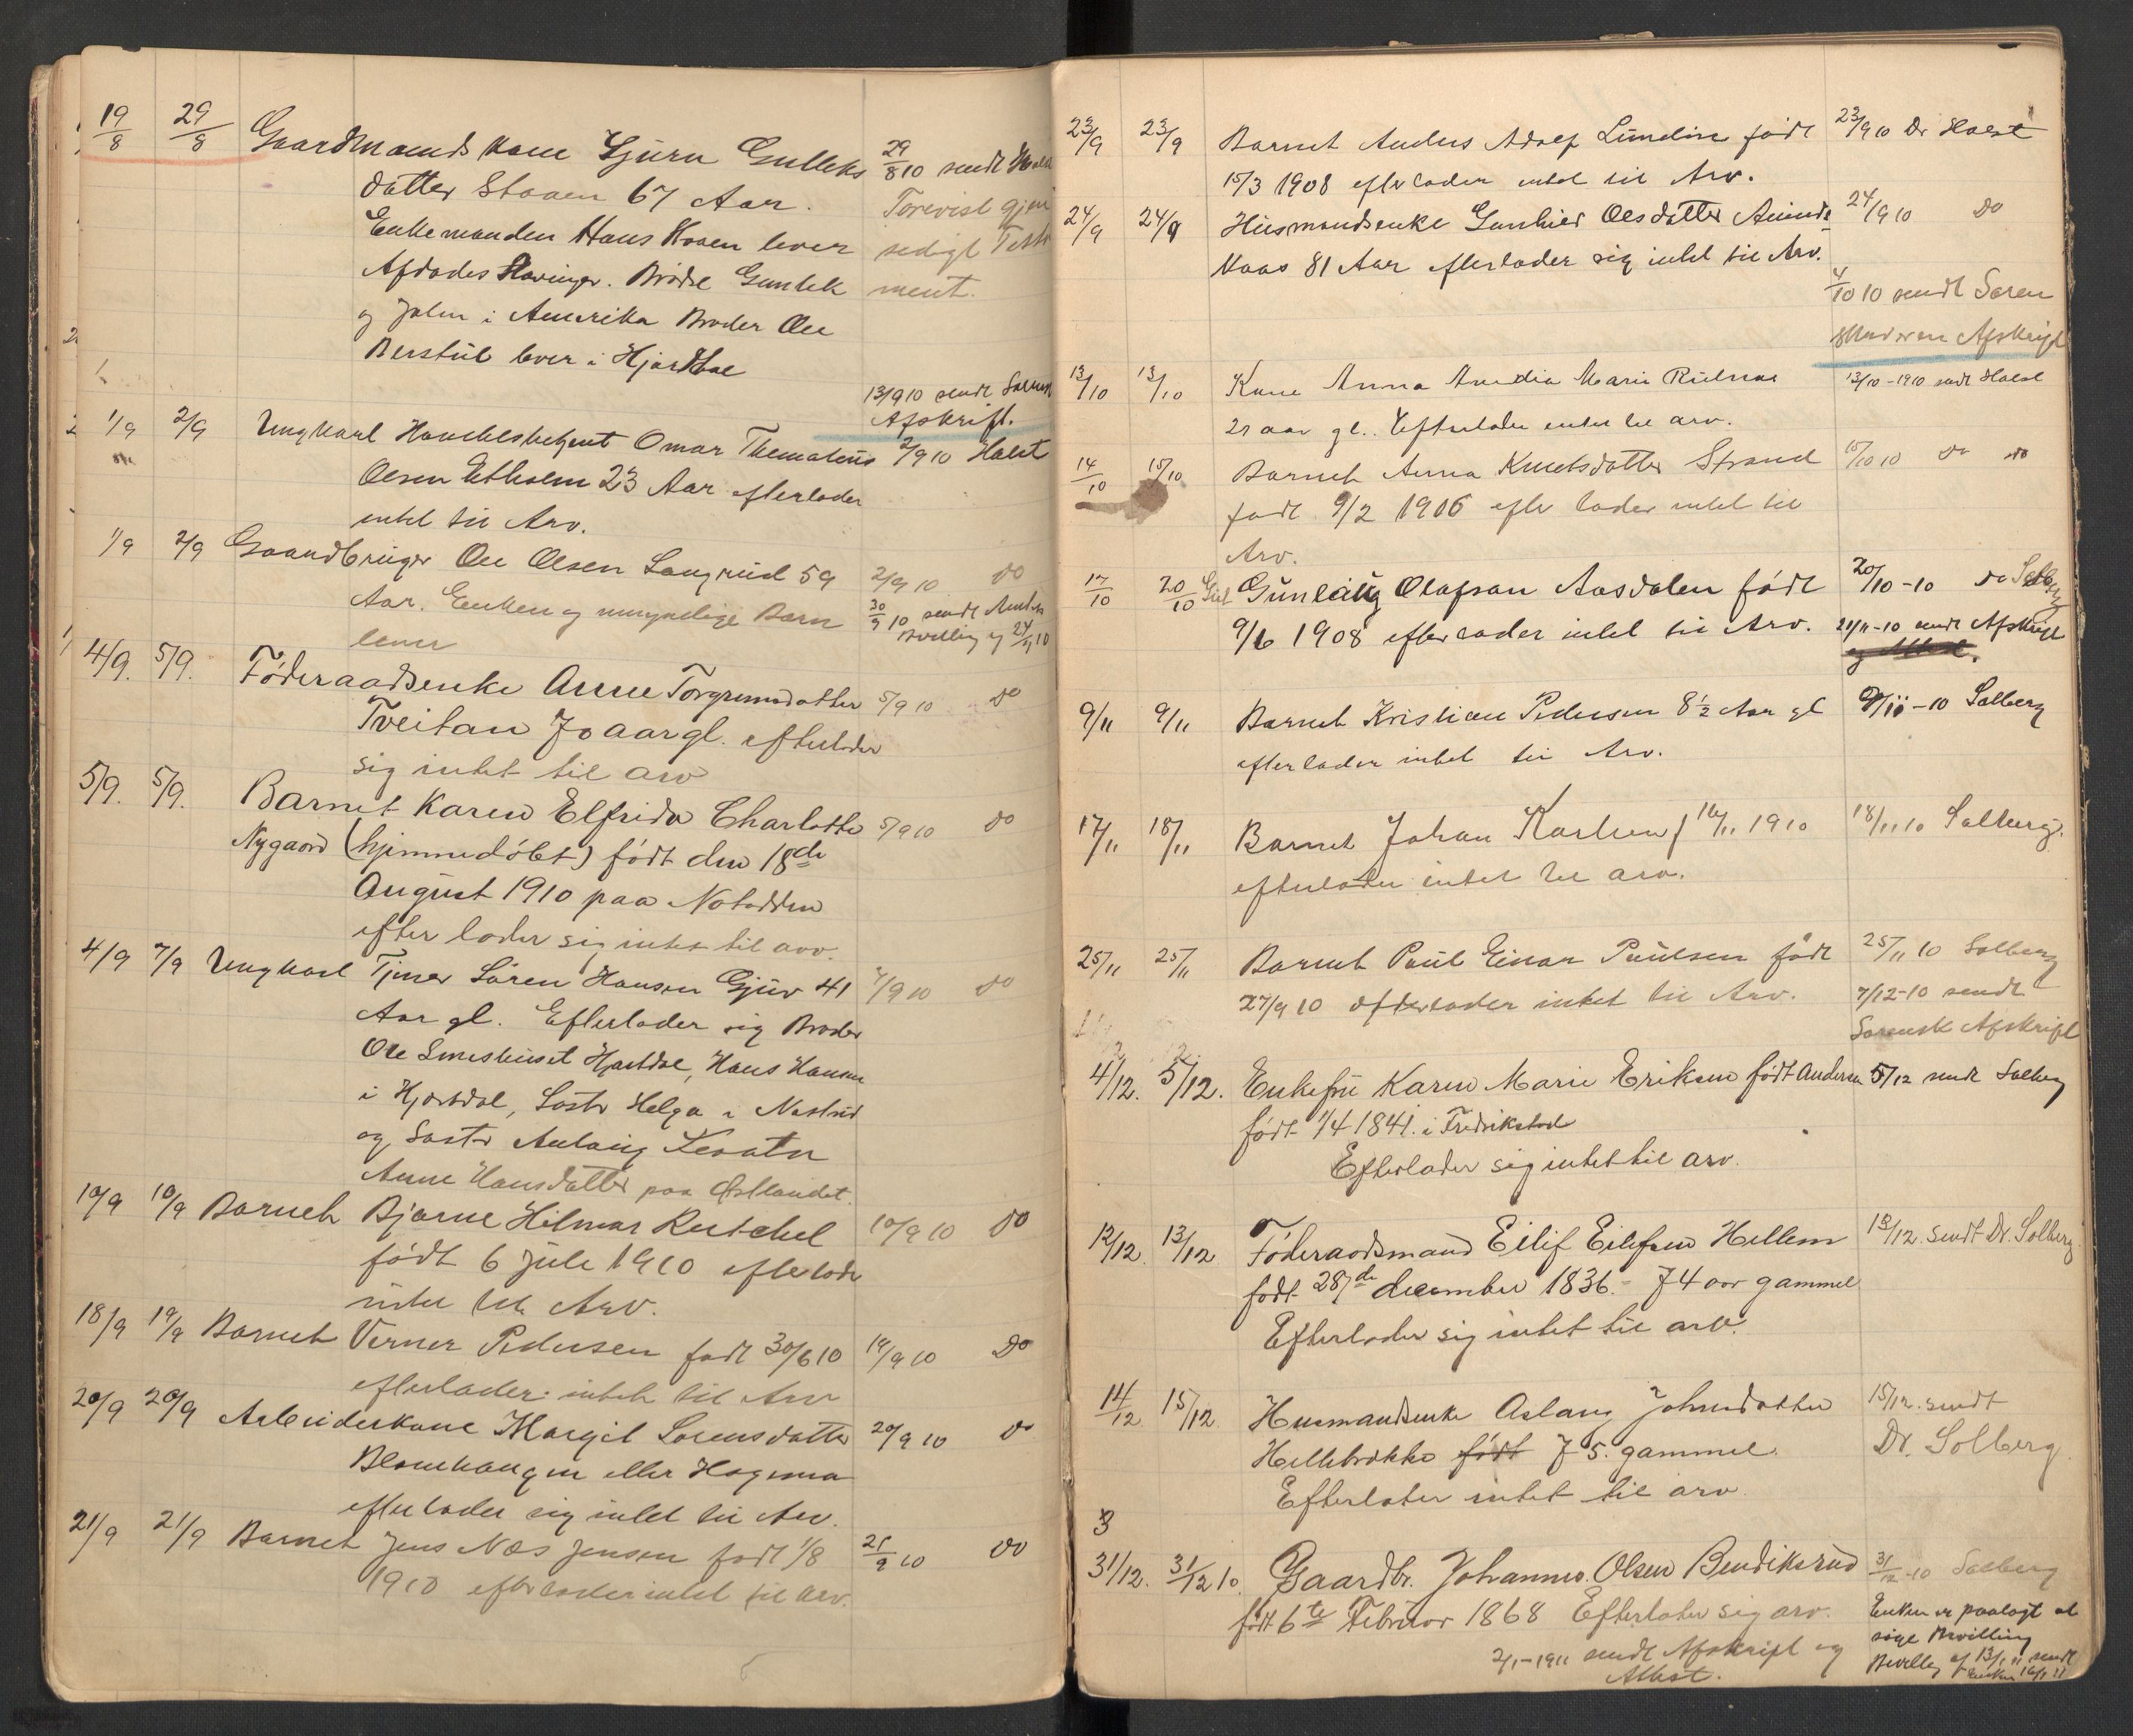 19/8 29/8 Gaardmands Kone Gjuru Gulleks 29/8 10 sendt
datter Staaen 67 Aar. Forevist gjen
Enkemanden Hans lever sedigt Testa
Afdødes. Brødre Gunlek ment.
og John i Amerika Broder Ole
Berstul lever i Hjartdal
13/9 10 sendt
Afskrift.
1/9 2/9 Ungkarl Handelsbetjent Omar Olsen 2/9 10 Holst
23 Aar efterlader
intet til Arv.
1/9 2/9 Gaardbruger Ole Olsen Langrud 59 2/9 10 do
Aar. Enken og umyndige Barn 20/9 10 sendt
lever Bevilling af 24/9 10
4/9. 5/9. Føderaadsenke Anne Torgrimsdatter 5/9 10 do
Tveitan 70 aar gl. efterlader
sig intet til arv
5/9. 5/9. Barnet Karen Elfrida Charlotte 5/9 10 do
Nygaard (hjemmedøbt) født den 18de
August 1910 paa Notodden
efterlader sig intet til arv.
4/9 7/9 Ungkarl Tjener Søren Hansen Gjuv 41 7/9 10 do
Aar gl. Efterlader sig Broder
Ole Hjartdal, Hans Hansen
i Hjartdal, Søster Helga i
og Søster
Anne Hansdatter paa Østlandet.
10/9 10/9 Barnet Bjarne Hilmar 10/9 10 do
født 6 Juli 1910 efterlader
intet til Arv.
18/9 19/9 Barnet Verner Pedersen født 30/6 10 19/9 10 do
efterlader intet til Arv
20/9 20/9 Arbeiderkone Margit Sorensdatter 20/9 10 do
Blomhaugen eller
efterlader sig intet til Arv.
21/9 21/9 Barnet Jens Næs Jensen født 1/8 21/9 10 do
1910 efterlader intet til Arv.
23/9 23/9 Barnet Anders Adolf Lundin født 23/9 10 Dr Holst
15/3 1908 efterlader intet til Arv.
24/9 24/9 Husmandsenke Gunhild Olsdatter 24/9 10 do
81 Aar efterlader sig intet til Arv.
4/10 10 sendt Soren
skriveren Afskrift
13/10 13/10 Kone Anna Marie 13/10-1910 sendt Holst
aar gl. Efterlader intet til arv.
14/10 15/10 Barnet Anna Knutsdatter Strand 15/10 10 do do
født 9/2 1906 efterlader intet til
Arv.
17/10 20/10 Gunleiug Olafsen Aasdalen født 20/10-10 do Solberg
9/6 1908 efterlader intet til Arv. 21/11-10 sendt Afskrift
9/11 9/11 Barnet Kristian Pedersen 8 1/2 Aar gl 9/11-10 Solberg
efterlader intet til Arv.
17/11 18/11 Barnet Johan Karlsen f 16/11 1910 18/11 10 Solberg.
efterlader intet til arv.
25/11 25/11 Barnet Paul Einar Paulsen født 25/11 10 Solberg
27/9 10 efterlader intet til Arv. 7/12-10 sendt
Sorensk Afskrift
4/12. 5/12. Enkefru Karen Marie Eriksen født Andersen 5/12 sendt Solberg
født 1/4 1841. i Fredrikstad
Efterlader sig intet til arv.
12/12. 13/12. Føderaadsmand Eilif Eilefsen Hellem 13/12. sendt Dr. Solberg
født 28de december 1836.- 74 aar gammel
Efterlader sig intet til arv.
14/12 15/12. Husmandsenke Aslaug Johnsdatter 15/12. sendt
født 75. gammel Dr. Solberg
Efterlater intet til arv
3
31/12. 31/12 10. Gaardbr. Johannes Olsen Bendiksrud 31/12-10 Solberg
født 6te Februar 1868 Efterlater sig arv. Enken er paalagt at
søge Bevilling
2/1-1911 sendt Afskrift og Bevilling af 13/1 11 sendt
Attest. Enken 16/1 11